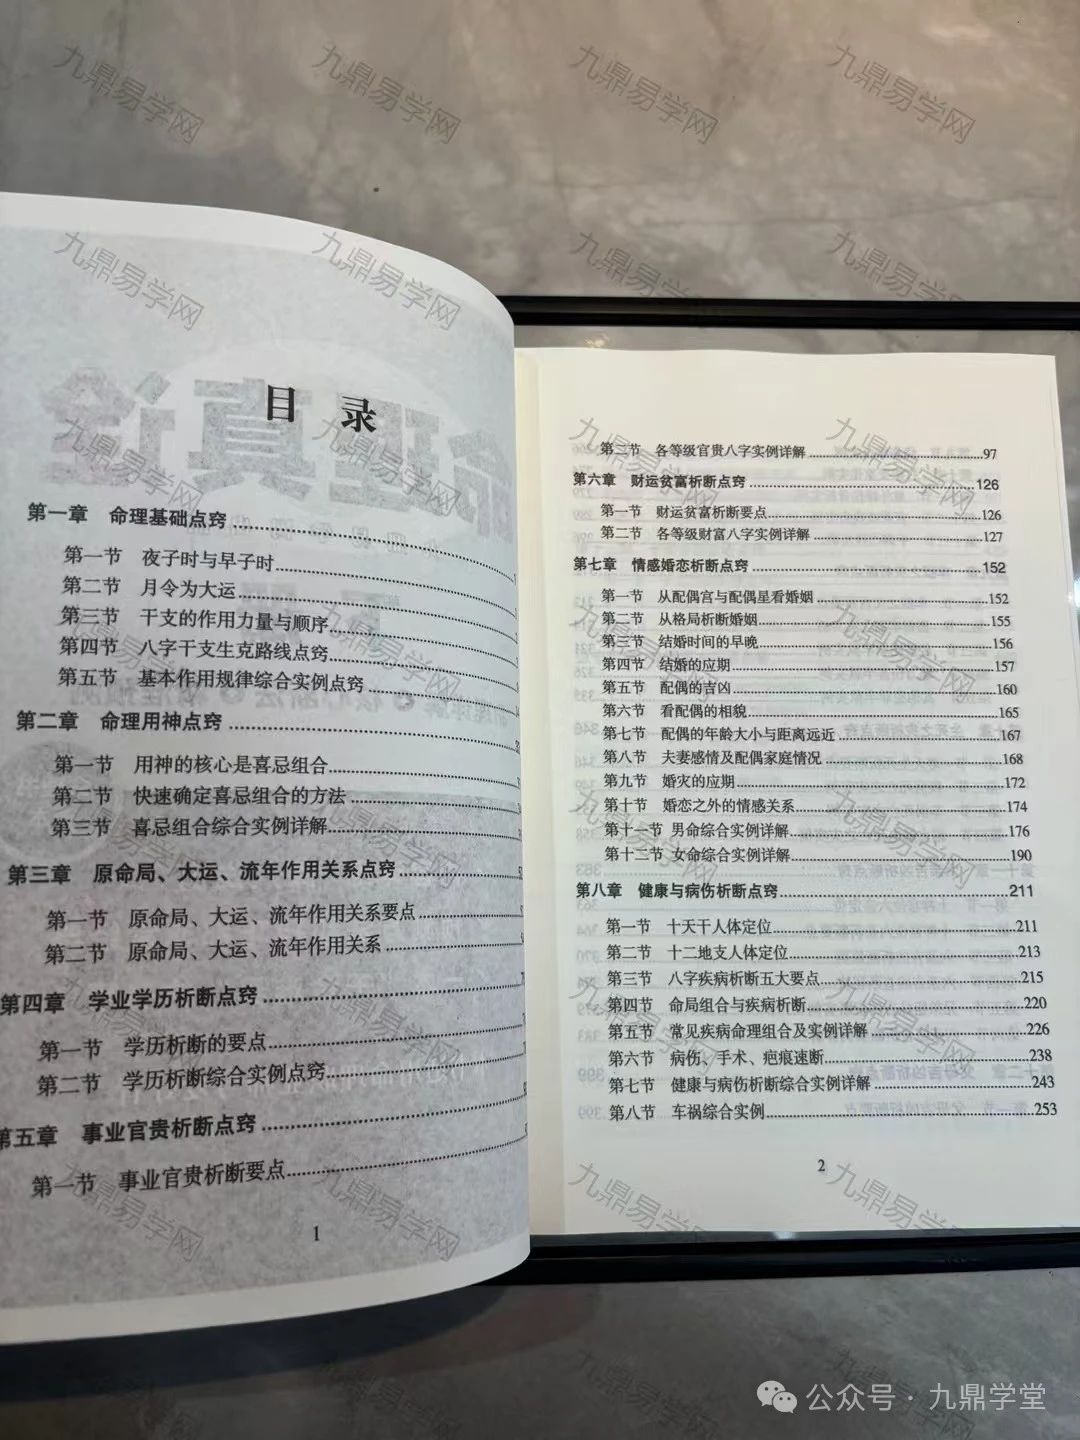 目 录
第一章 命理基础点窍
第一节 夜子时与早子时
第二节 月令为大运
第三节 干支的作用力量与顺序
第四节 八字干支生克路线点窍
第五节 基本作用规律综合实例点窍
第二章 命理用神点窍
第一节 用神的核心是喜忌组合
第二节 快速确定喜忌组合的方法
第三节 喜忌组合综合实例详解
第三章 原命局、大运、流年作用关系点窍
第一节 原命局、大运、流年作用关系要点
第二节 原命局、大运、流年作用关系
第四章 学业学历析断点窍
第一节 学历析断的要点
第二节 学历析断综合实例点窍
第五章 事业官贵析断点窍
第一节 事业官贵析断要点
1
第二节 各等级官贵八字实例详解 97
第六章 财运贫富析断点窍 126
第一节 财运贫富析断要点 126
第二节 各等级财富八字实例详解 127
第七章 情感婚恋析断点窍 152
第一节 从配偶宫与配偶星看婚姻 152
第二节 从格局析断婚姻 155
第三节 结婚时间的早晚 156
第四节 结婚的应期 157
第五节 配偶的吉凶 160
第六节 看配偶的相貌 165
第七节 配偶的年龄大小与距离远近 167
第八节 夫妻感情及配偶家庭情况 168
第九节 婚灾的应期 172
第十节 婚恋之外的情感关系 174
第十一节 男命综合实例详解 176
第十二节 女命综合实例详解 190
第八章 健康与病伤析断点窍 211
第一节 十天干人体定位 211
第二节 十二地支人体定位 213
第三节 八字疾病析断五大要点 215
第四节 命局组合与疾病析断 220
第五节 常见疾病命理组合及实例详解 226
第六节 病伤、手术、疤痕速断 238
第七节 健康与病伤析断综合实例详解 243
第八节 车祸综合实例 253
2
九鼎易学网
公众号·九鼎学堂